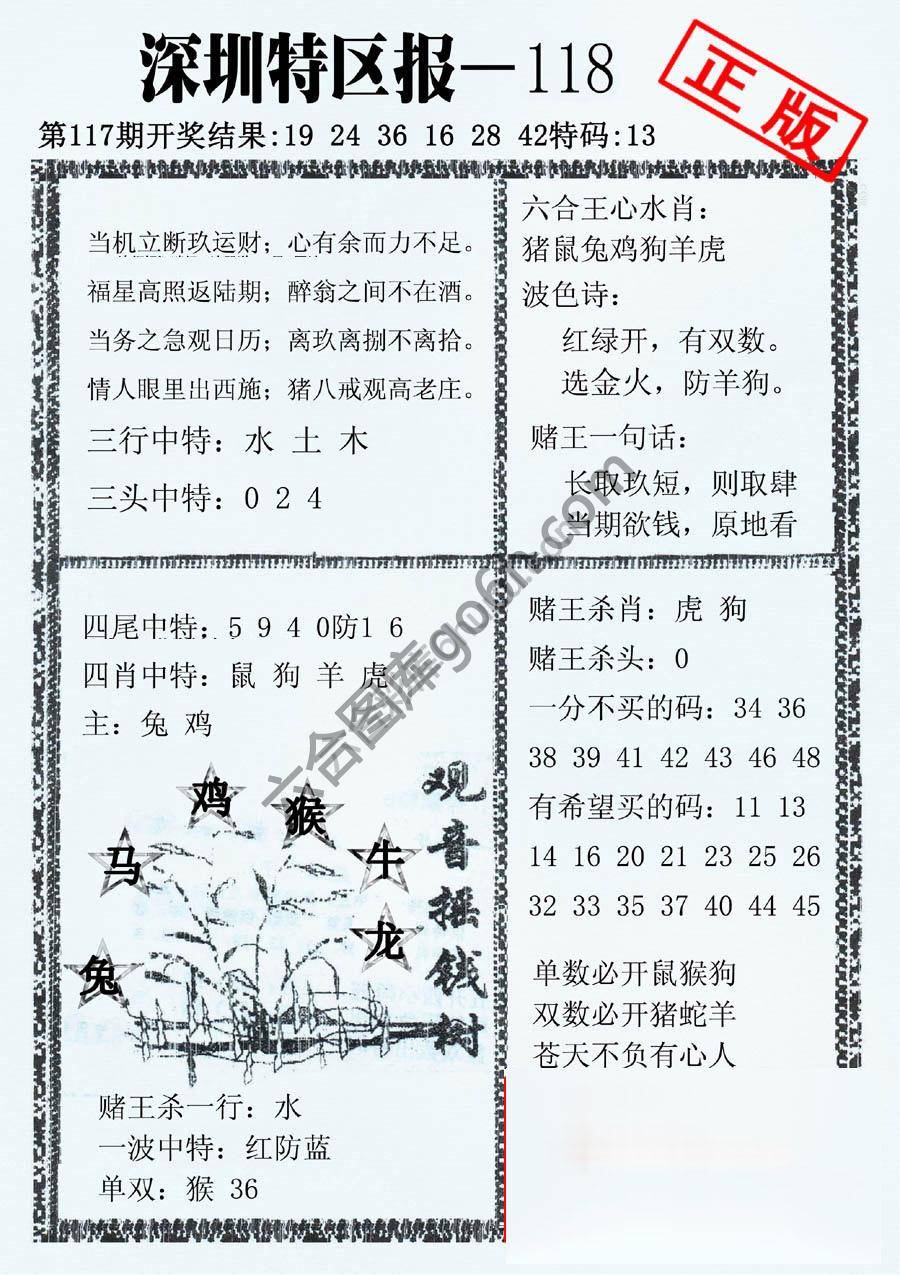 深圳特区报—118
正版
第117期开奖结果:19 24 36 16 28 42特码:13
当机立断玖运财；心有余而力不足。
福星高照返陆期；醉翁之间不在酒。
当务之急观日历；离玖离捌不离拾。
情人眼里出西施；猪八戒观高老庄。
三行中特：水 土 木
三头中特：0 2 4
六合王心水肖：
猪鼠兔鸡狗羊虎
波色诗：
红绿开，有双数。
选金火，防羊狗。
赌王一句话：
长取玖短，则取肆
当期欲钱，原地看
四尾中特：5 9 4 0防1 6
四肖中特：鼠 狗 羊 虎
主：兔 鸡
鸡
猴
马
牛
龙
兔
观音摇钱树
赌王杀一行：水
一波中特：红防蓝
单双：猴 36
赌王杀肖：虎 狗
赌王杀头：0
一分不买的码：34 36
38 39 41 42 43 46 48
有希望买的码：11 13
14 16 20 21 23 25 26
32 33 35 37 40 44 45
单数必开鼠猴狗
双数必开猪蛇羊
苍天不负有心人
六合图库go6h.com